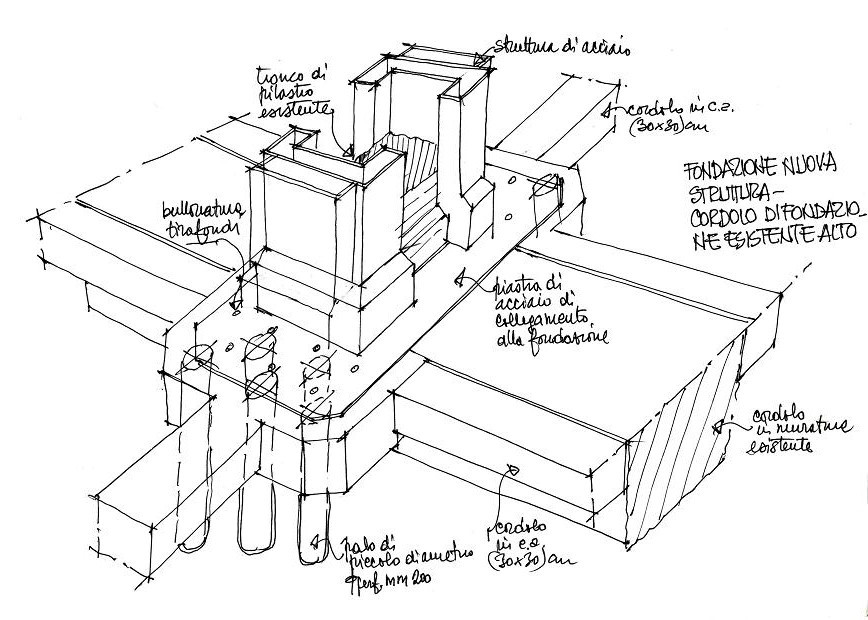 struttura di acciaio
tronco di
pilastro
esistente
cordolo in c.a.
(30x30)cm
FONDAZIONE NUOVA
STRUTTURA -
CORDOLO DI FONDAZIO_
NE ESISTENTE ALTO
bullonatura
tirafondi
piastra di
acciaio di
collegamento
alla fondazione
cordolo
in muratura
esistente
cordolo
in c.a.
(30x30)cm
palo di
piccolo diametro
perf. mm 200